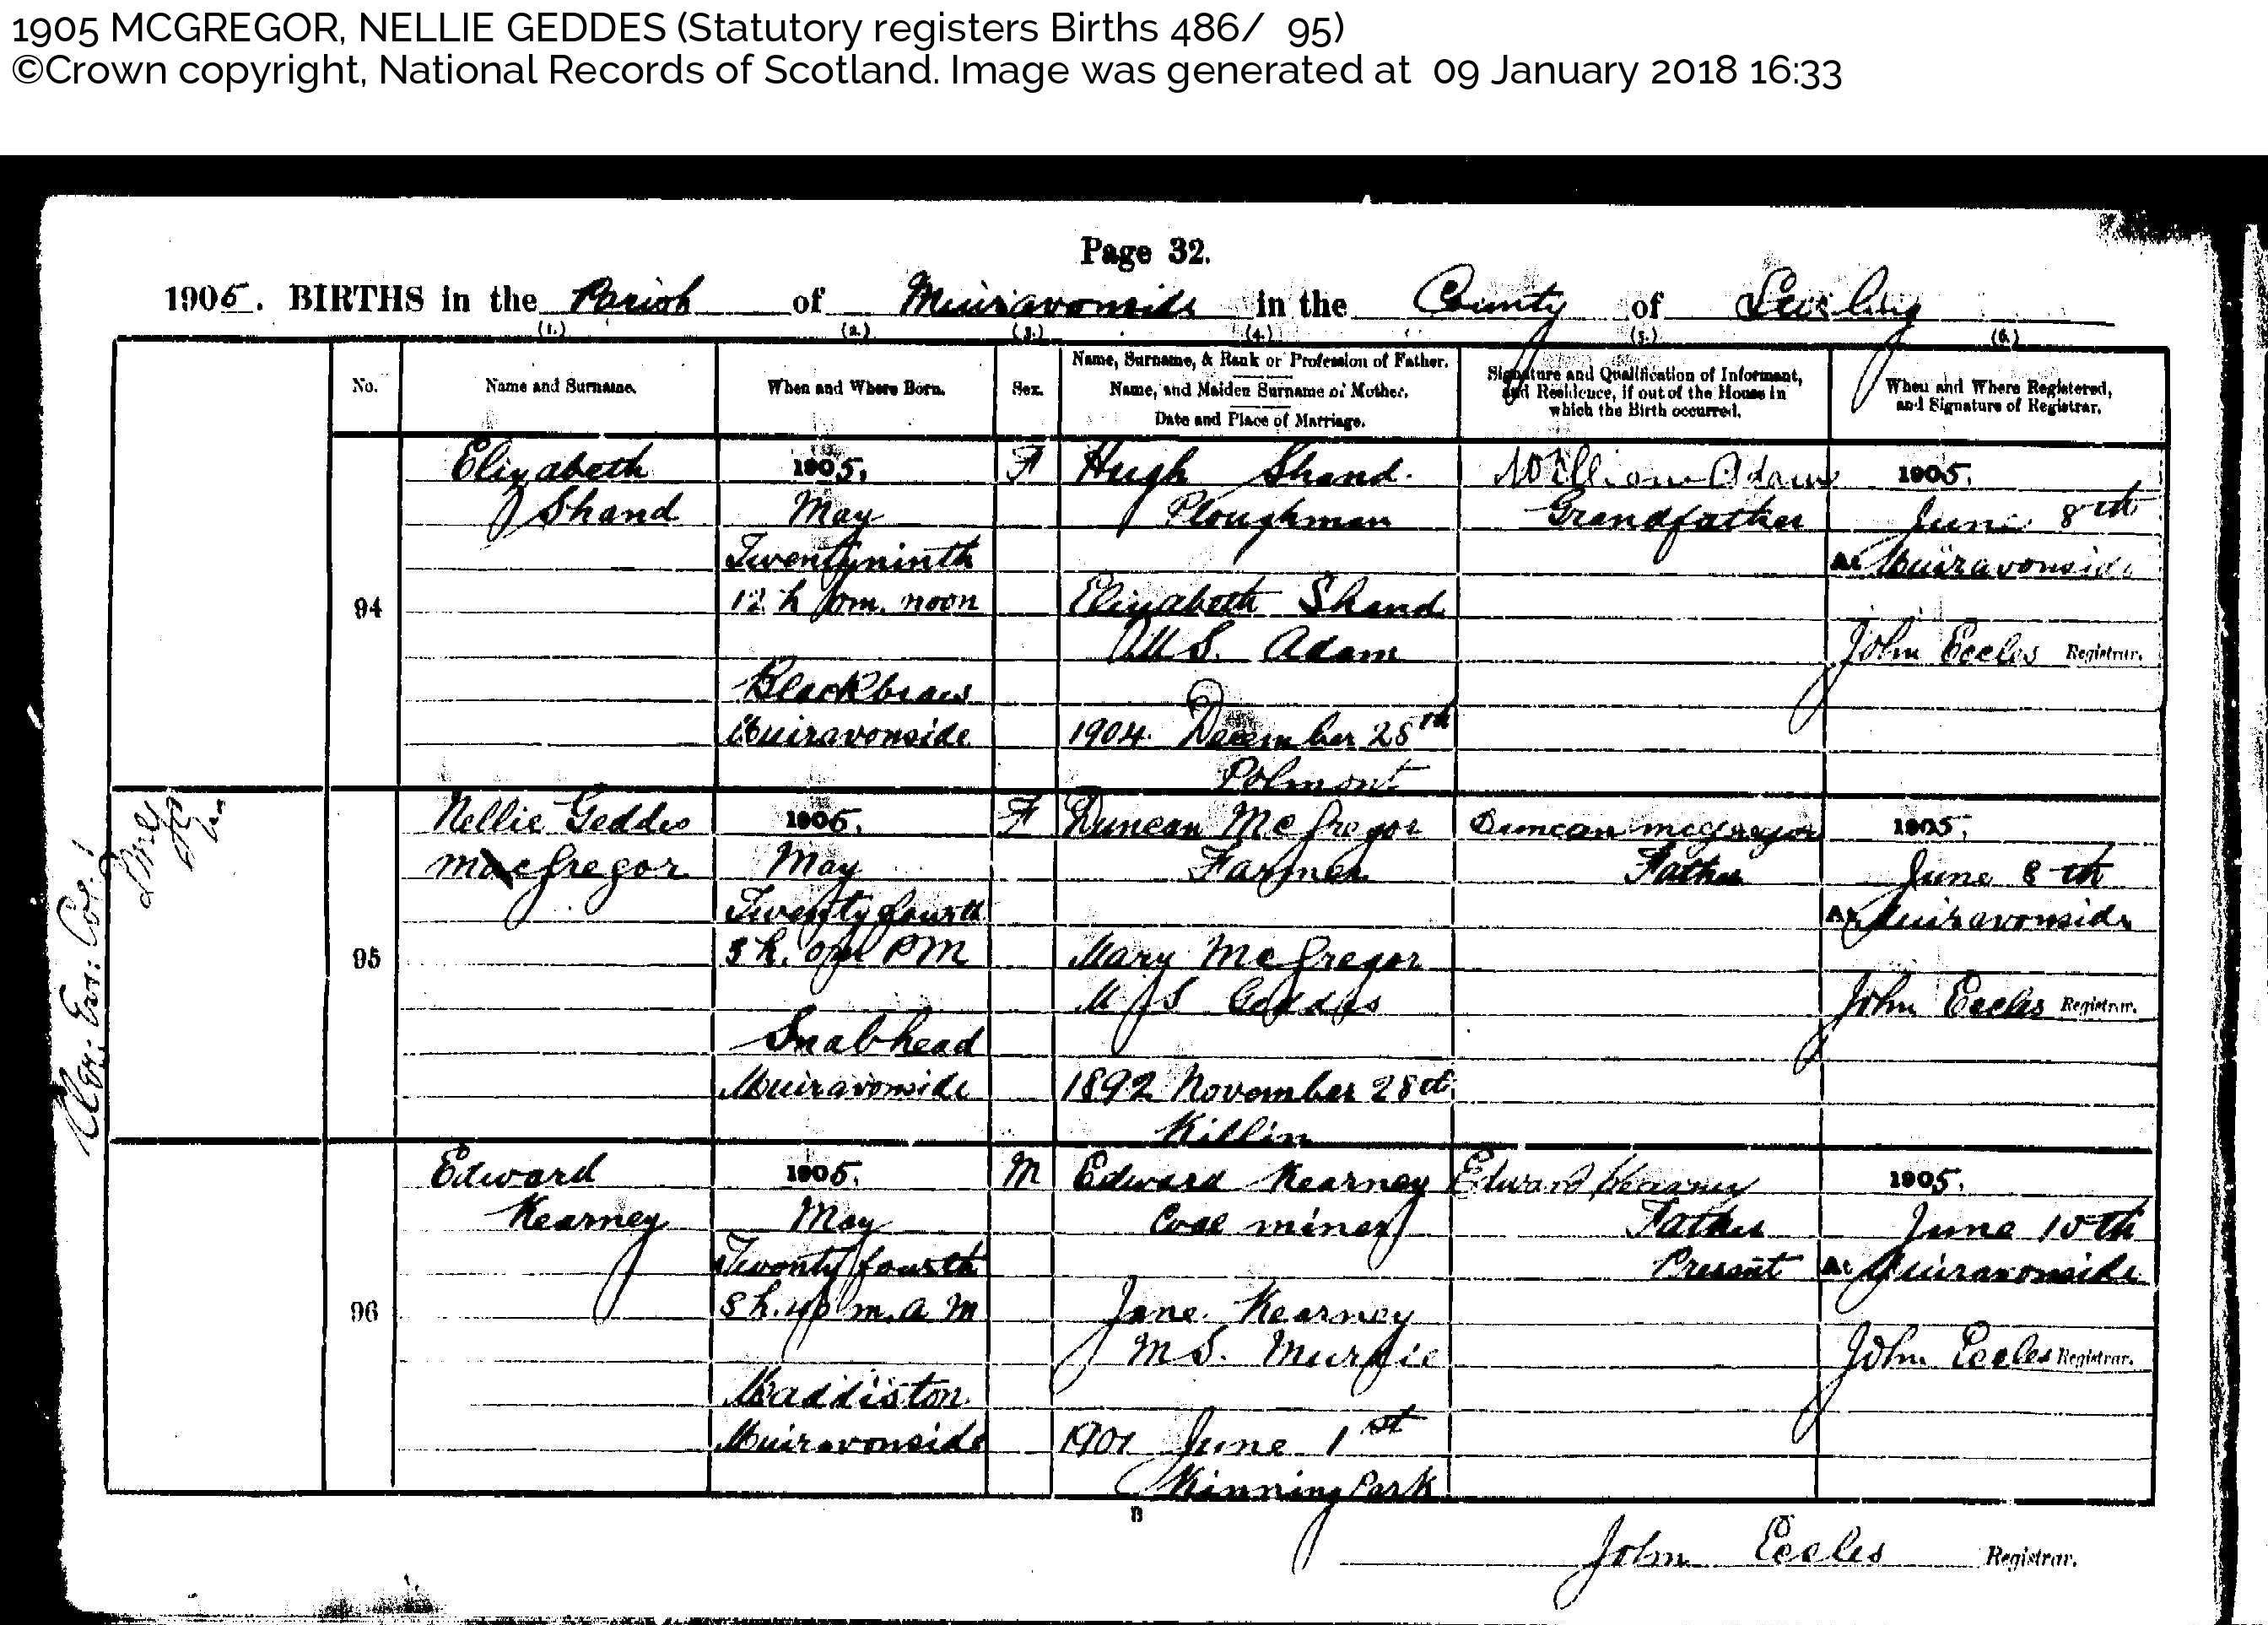 1905 MCGREGOR, NELLIE GEDDES (Statutory registers Births 486/ 95)
©Crown copyright, National Records of Scotland. Image was generated at 09 January 2018 16:33
Page 32.
1905. BIRTHS in the Parish of Muiravonside in the County of Stirling
(1.) (2.) (3.) (4.) (5.) (6.)
No.
Name and Surname.
When and Where Born.
Sex.
Name, Surname, & Rank or Profession of Father.
Name, and Maiden Surname of Mother.
Date and Place of Marriage.
Signature and Qualification of Informant,
and Residence, if out of the House in
which the Birth occurred.
When and Where Registered,
and Signature of Registrar.
94
Elizabeth
Shand
1905.
May
Twentyninth
12 h 0m. noon
Blackbraes
Muiravonside
F
Hugh Shand.
Ploughman
Elizabeth Shand
M.S. Adam
1904. December 28th
Polmont
William Adam
Grandfather
1905.
June 8th
At Muiravonside
John Eccles Registrar.
Reg: Cor:
95
Nellie Geddes
McGregor
1905.
May
Twenty fourth
h. 0m PM
Snabhead
Muiravonside
F
Duncan McGregor
Farmer
Mary McGregor
M S Geddes
1892 November 28th
Killin
Duncan McGregor
Father
1905.
June 8th
At Muiravonside
John Eccles Registrar.
96
Edward
Kearney
1905.
May
Twenty fourth
h. 40 m. A M
Maddiston
Muiravonside
M
Edward Kearney
Coal miner
Jane Kearney
M S.
1901 June 1st
Kinning Park
Edward Kearney
Father
Present
1905.
June 10th
At Muiravonside
John Eccles Registrar.
B
John Eccles Registrar.